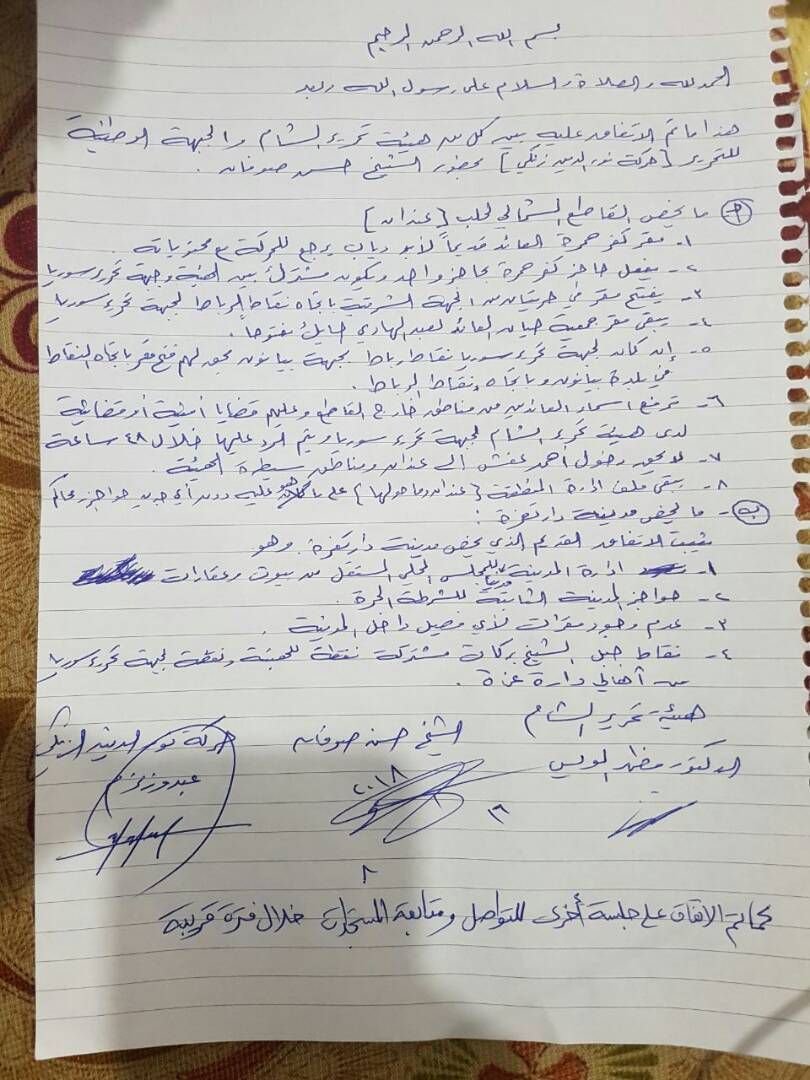 بسم الله الرحمن الرحيم
الحمدلله والصلاة والسلام على رسول الله وبعد
هذا ما تم الاتفاق عليه بين كل من هيئة تحرير الشام والجبهة الوطنية
للتحرير [حركة نور الدين زنكي] بحضور الشيخ حسن صوفان.
أ- ما يخص القاطع الشمالي لحلب [عندان]
١- مقر كفر حمرة العائد قديماً لأبو دياب يرجع للحركة مع محتوياته.
٢- يفعل حاجز كفر حمرة بحاجز واحد ويكون مشترك بين الهيئة وجبهة تحرير سوريا
٣- يفتتح مقر في حريتان من الجهة الشرقية باتجاه نقاط الرباط لجبهة تحرير سوريا
٤- يبقى مقر جمعية حيان العائد لعبد الهادي حايك مفتوحاً.
٥- إن كان لجبهة تحرير سوريا نقاط رباط بجهة بيانون يحق لهم فتح مقر باتجاه النقاط
في بلدة بيانون وباتجاه نقاط الرباط.
٦- ترفع اسماء العائدين من مناطق خارج القاطع وعليهم قضايا أمنية أو قضائية
لدى هيئة تحرير الشام لجبهة تحرير سوريا ويتم الرد عليها خلال ٤٨ ساعة
٧- لا يحق دخول أحمد عفش إلى عندان ومناطق سيطرة الهيئة.
٨- يبقى ملف ادارة المنطقة [عندان وما حولها] على ما هو عليه دون أي جديد حواجز محاكم
ب- ما يخص مدينة دارة عزة:
تثبيت الاتفاق القديم الذي يخص مدينة دارة عزة. وهو
١- ادارة المدينة للمجلس المحلي المستقل من بيوت وعقارات
٢- حواجز المدينة الثابتة للشرطة الحرة.
٣- عدم وجود مقرات لأي فصيل داخل المدينة.
٤- نقاط جبل الشيخ بركات مشتركة نقطة للهيئة ونقطة لجبهة تحرير سوريا
من أهالي دارة عزة.
هيئة تحرير الشام الشيخ حسن صوفان حركة نور الدين الزنكي
الدكتور مظهر الويس
٢٠١٨
٨
كما تم الاتفاق على جلسة أخرى للتواصل ومتابعة المستجدات خلال فترة قريبة